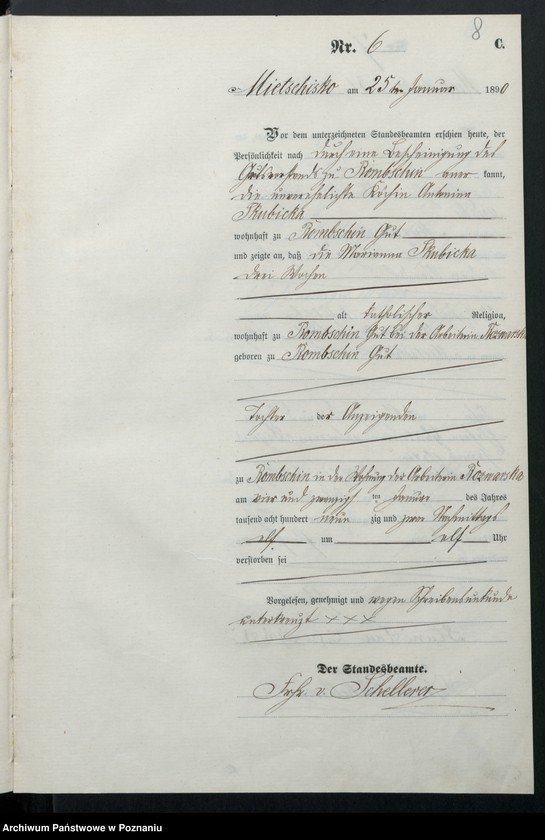 8
Nr. 6 C.
Mietschisko am 25ten Januar 1890
Vor dem unterzeichneten Standesbeamten erschien heute, der
Persönlichkeit nach durch eine Bescheinigung des
Gutsvorstands zu Rombschin aner kannt,
die unverehelichte Köchin Antonina
Skubicka
wohnhaft zu Rombschin Gut
und zeigte an, daß die Marianna Skubicka
drei Wochen
alt katholischer Religion,
wohnhaft zu Rombschin Gut bei der Arbeiterin
geboren zu Rombschin Gut
Tochter der Anzeigenden
zu Rombschin in der Wohnung der Arbeiterin
am vier und zwanzigsten Januar des Jahres
tausend acht hundert neun zig und Nachmittags
elf um elf Uhr
verstorben sei
Vorgelesen, genehmigt und wegen Schreibensunkunde
unterkreuzt XXX
Der Standesbeamte.
Frhr v.
Archiwum Państwowe w Poznaniu